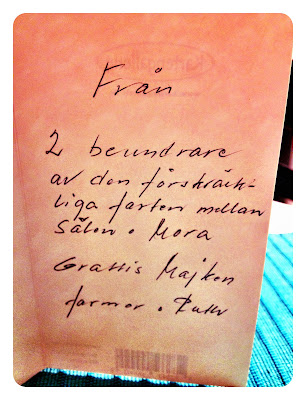 Från
2 beundrare
av den förskräck-
liga farten mellan
Sälen o Mora
Grattis Majken
farmor o Ruth